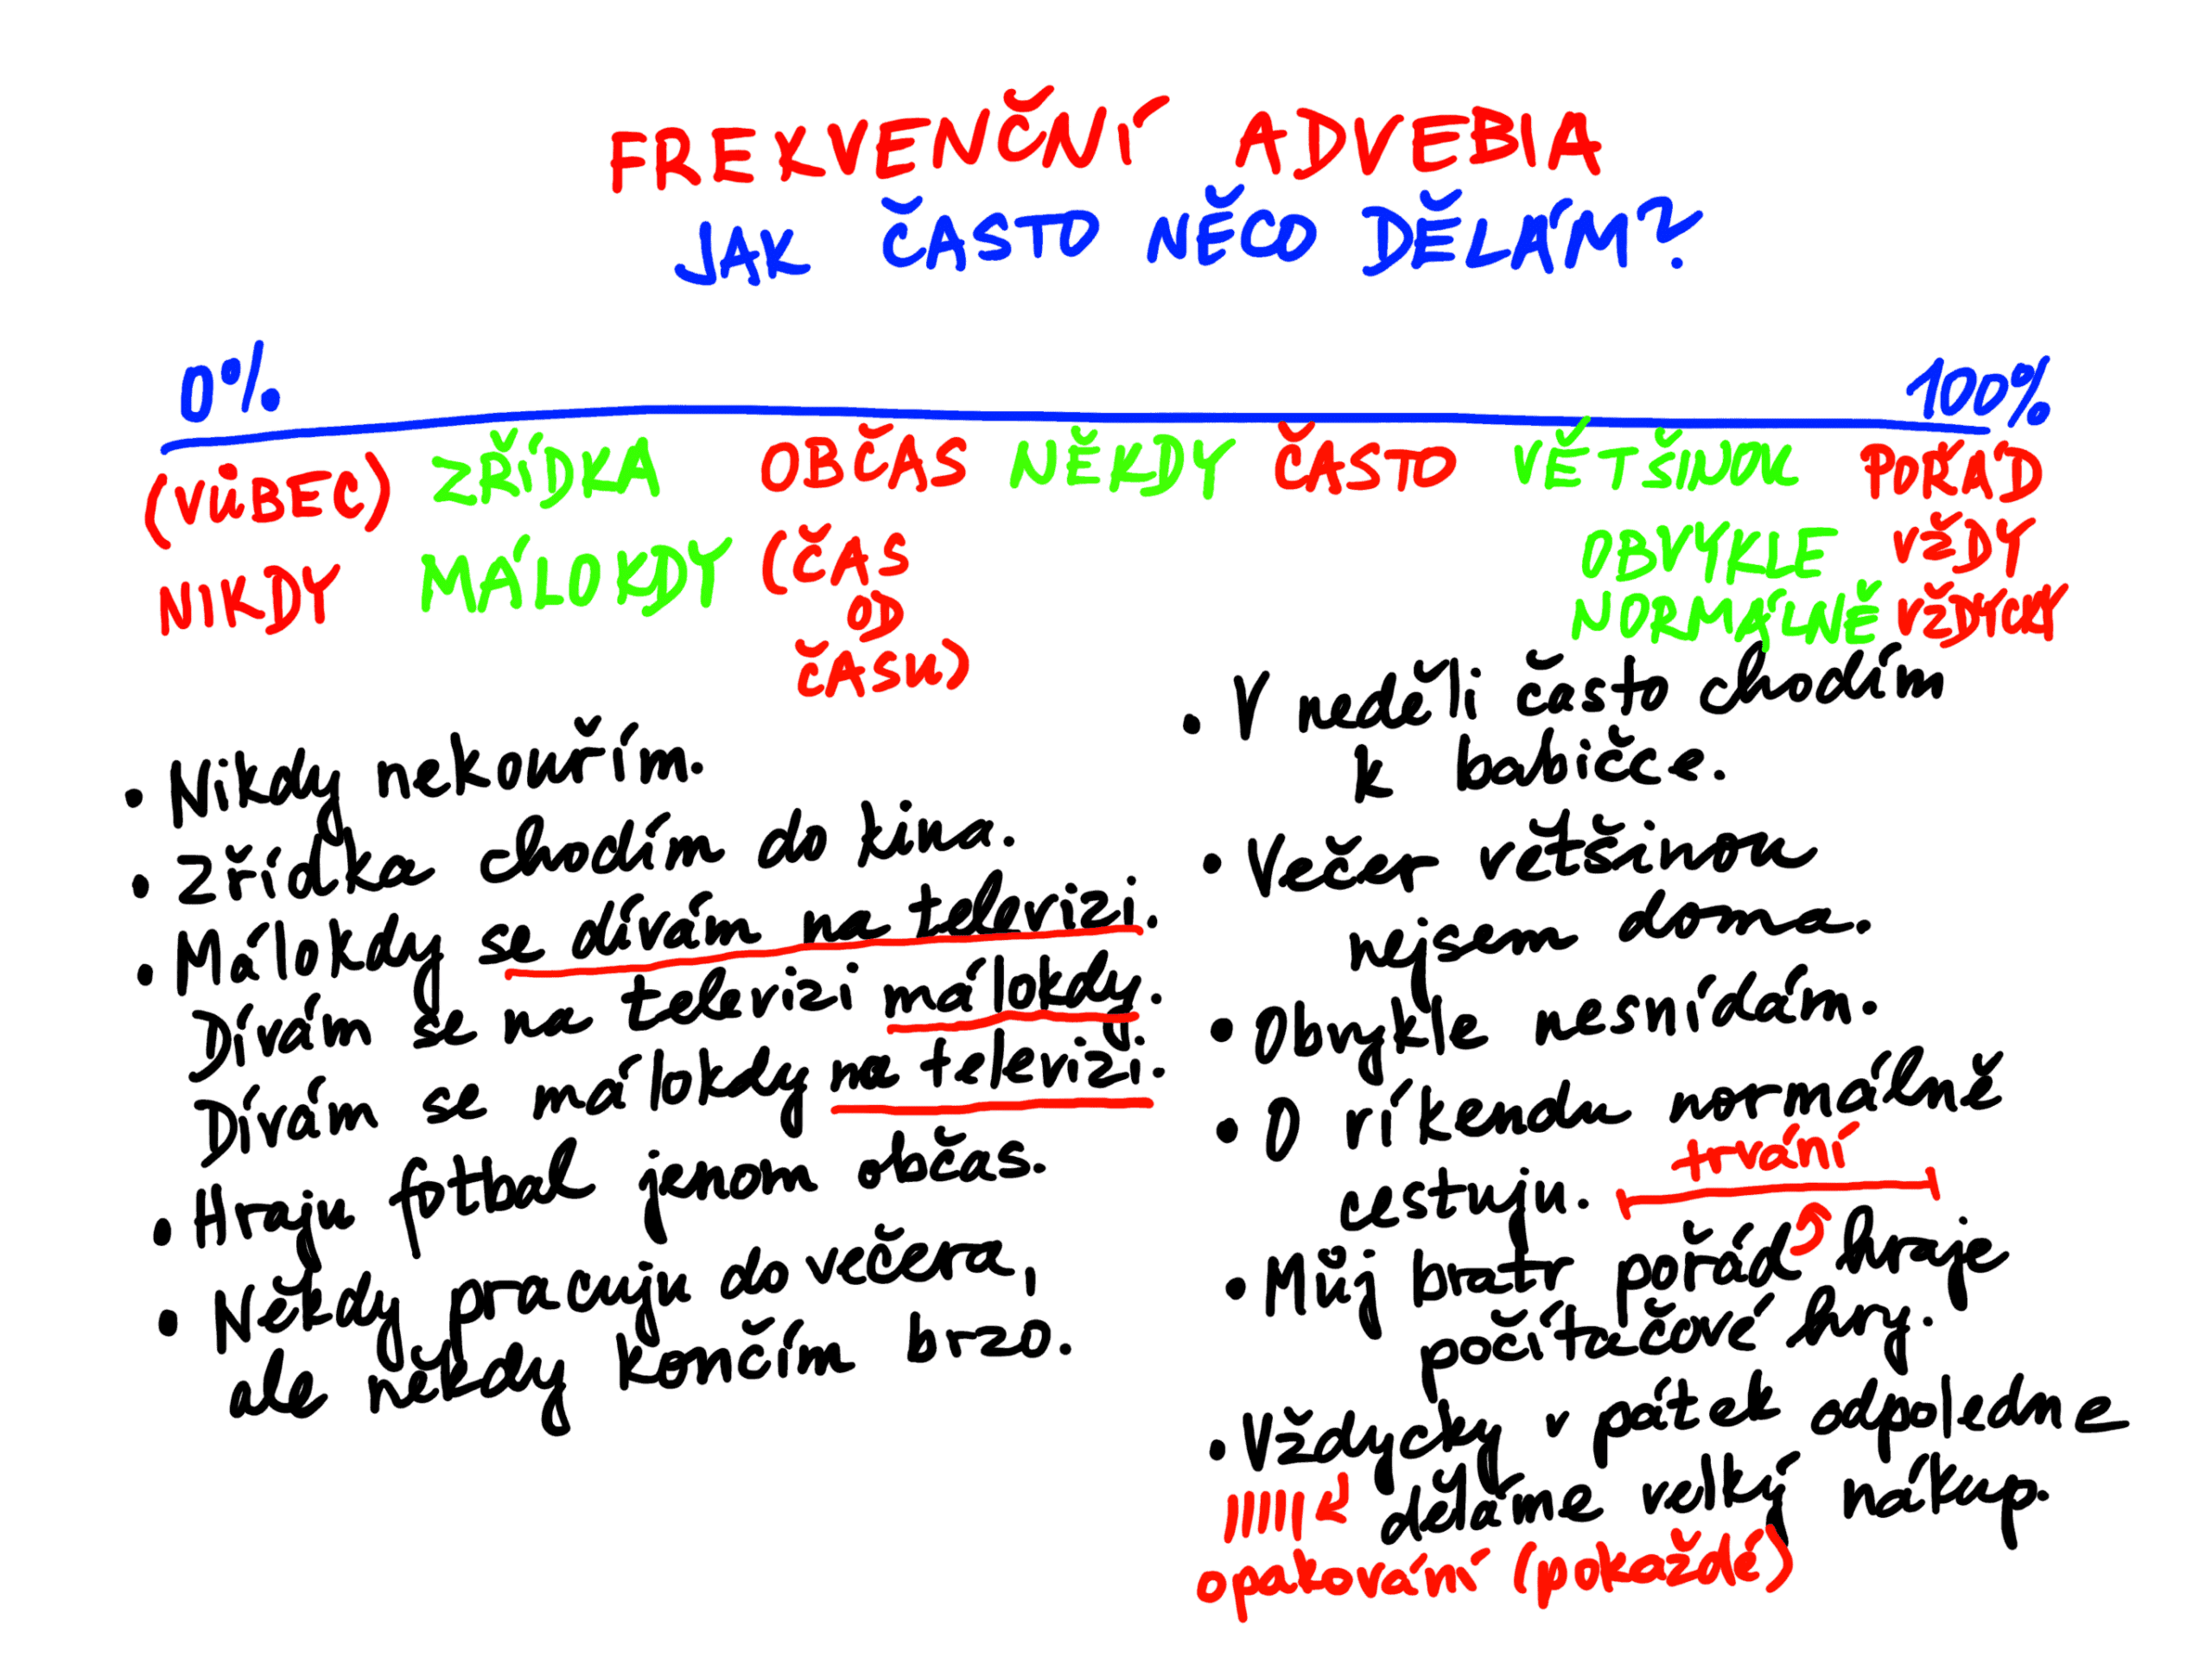 FREKVENČNÍ ADVEBIA
JAK ČASTO NĚCO DĚLÁM?
0% 100%
(VŮBEC) ZŘÍDKA OBČAS NĚKDY ČASTO VĚTŠINOU POŘÁD
NIKDY MÁLOKDY (ČAS OBVYKLE VŽDY
OD NORMÁLNĚ VŽDYCKY
ČASU)
• Nikdy nekouřím.
• Zřídka chodím do kina.
• Málokdy se dívám na televizi.
Dívám se na televizi málokdy.
Dívám se málokdy na televizi.
• Hraju fotbal jenom občas.
• Někdy pracuju do večera,
ale někdy končím brzo.
• V neděli často chodím
k babičce.
• Večer většinou
nejsem doma.
• Obvykle nesnídám.
• O víkendu normálně
cestuju.
trvání
• Můj bratr pořád hraje
počítačové hry.
• Vždycky v pátek odpoledne
děláme velký nákup.
opakování (pokaždé)